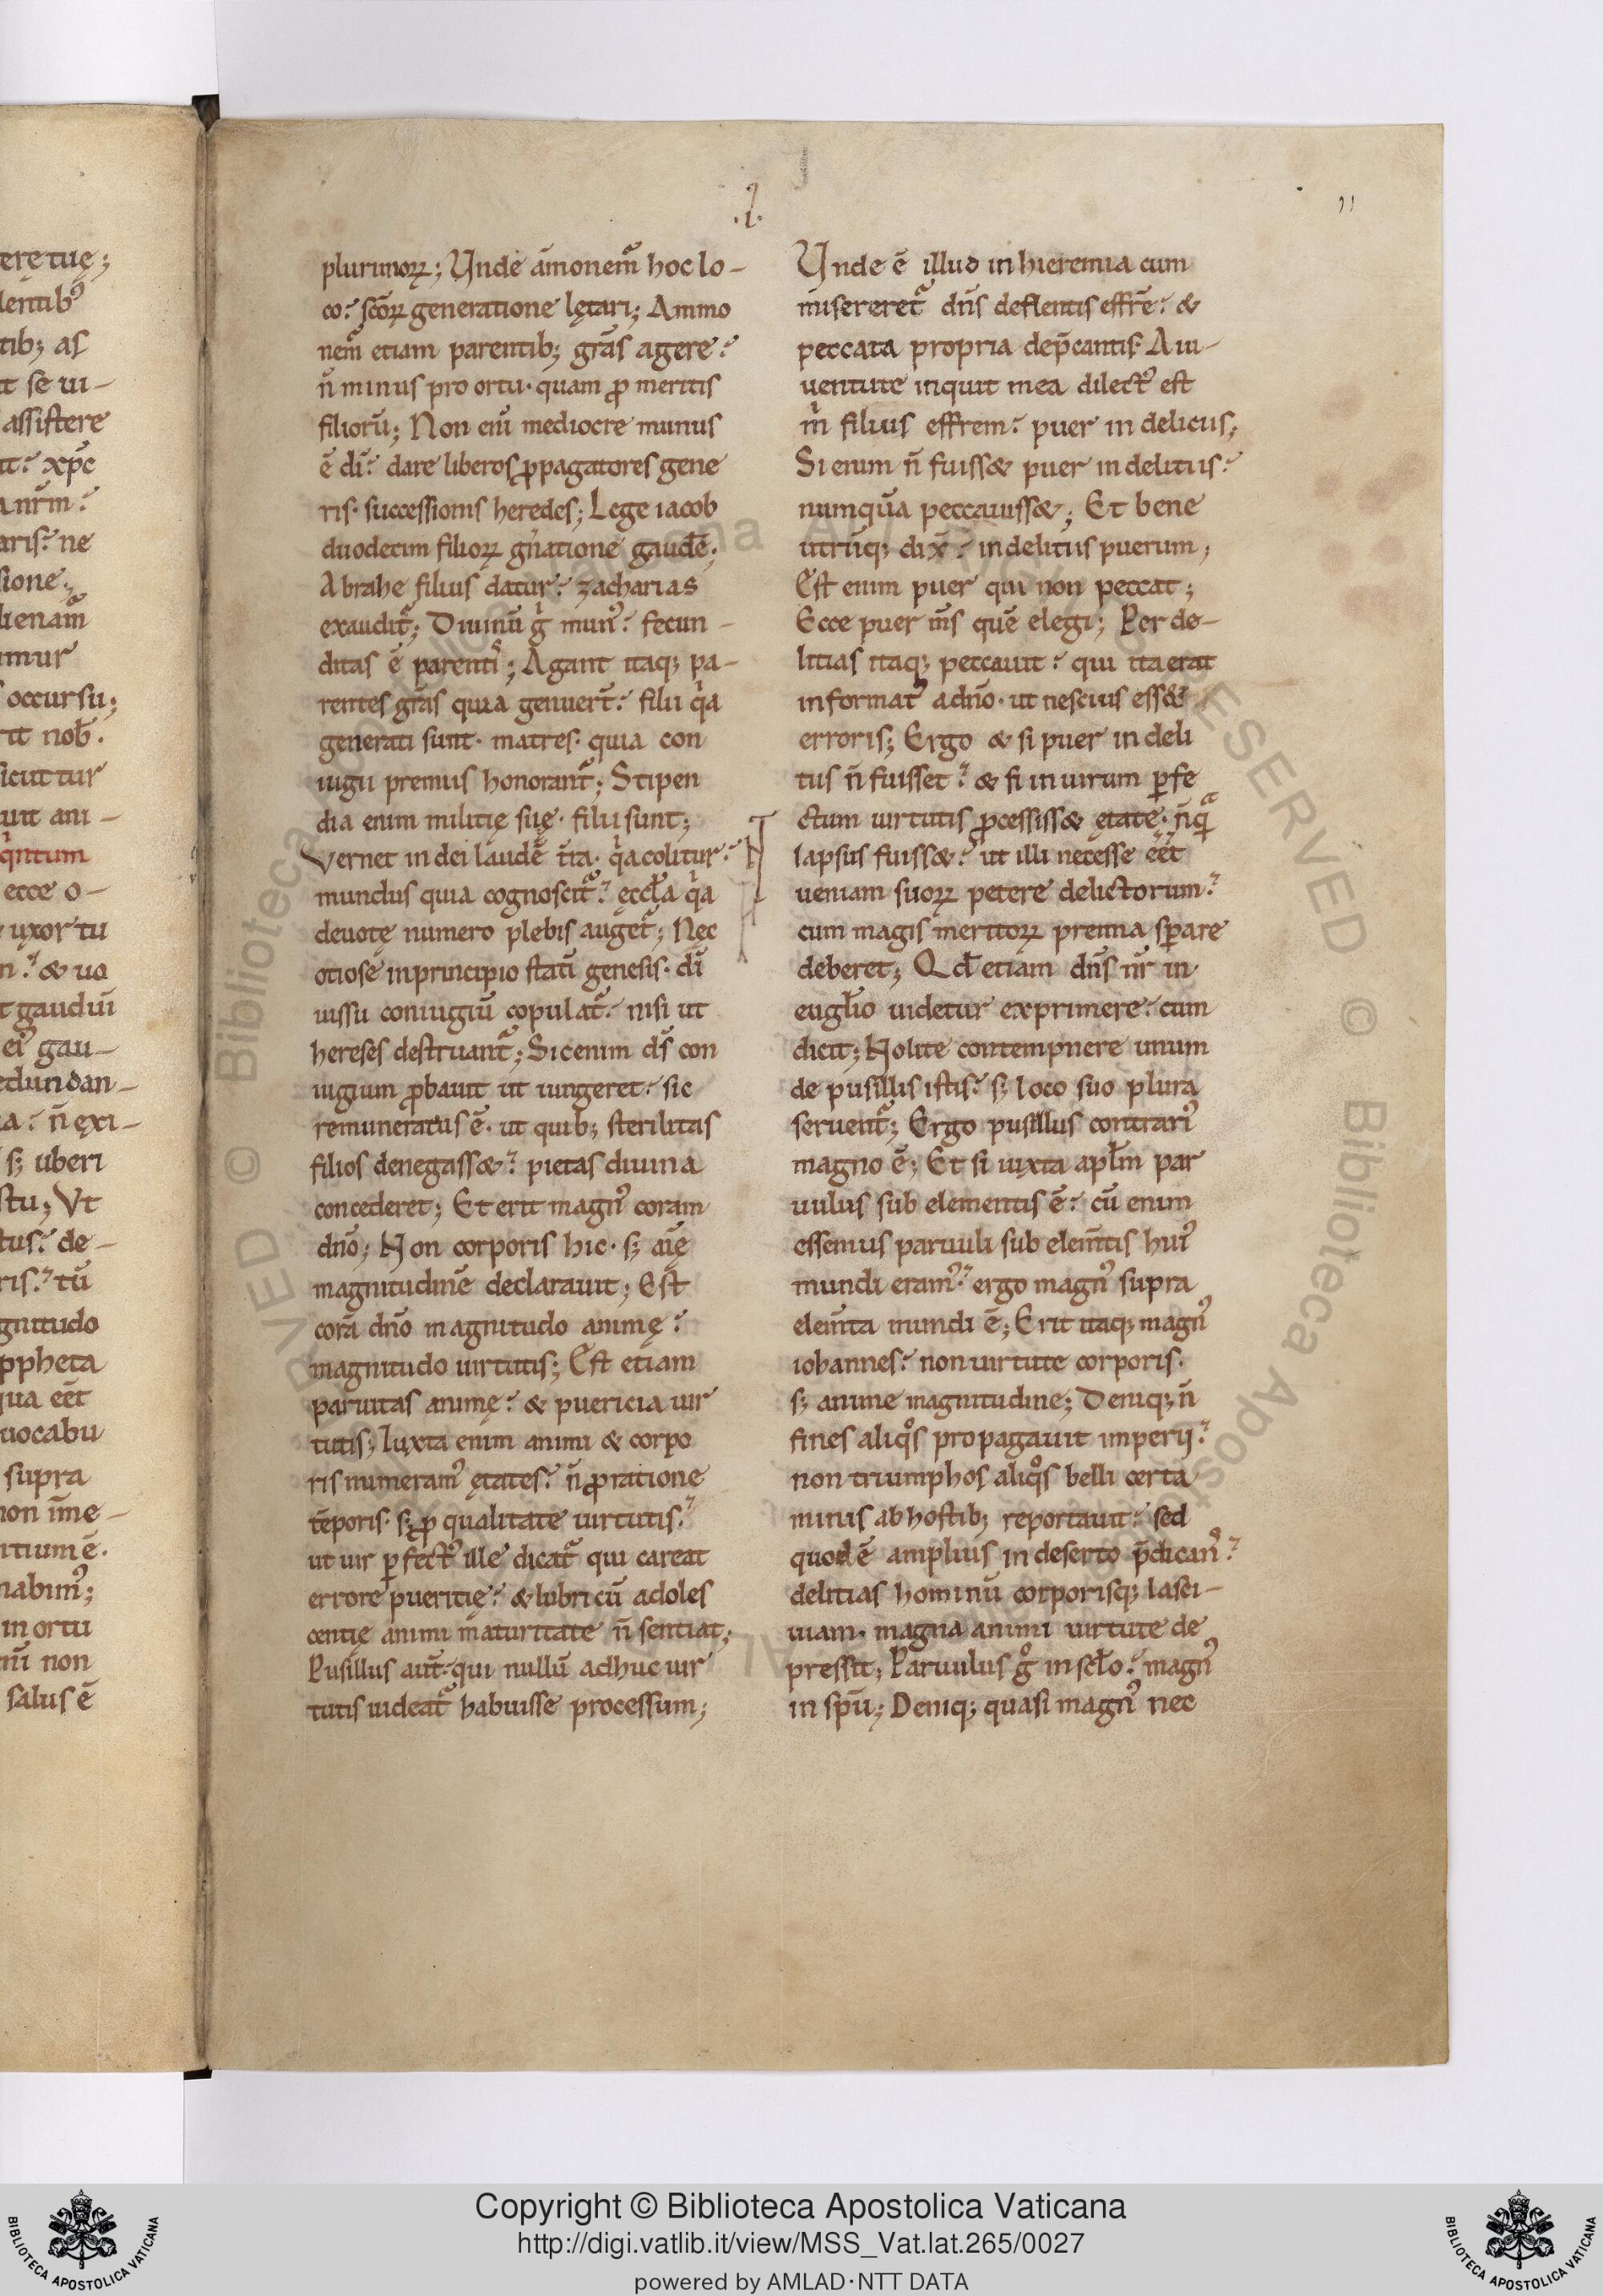 erętuę;
lentibꝰ
tib; as
it se ui-
assistere
it? xp̄c
a nr̄m?
aris? ne
sione;
lienam̄
imur
occursu;
rit nob̄.
sicut tur
uit ani-
q̄intum
ecce o-
uxor tu
n? & uo
t gaudiū
eiꝰ gau-
edundan-
a? n̄ exi-
s; uberi
stu; Vt
tus? de-
ris? tū
gnitudo
ppheta
qua eēt
uocabu
supra
non īme-
rtium ē.
nabimꝰ;
in ortu
non
salus ē
.I.
11
plurimoꝝ; Unde āmonem̄ hoc lo-
co? sc̄oꝝ generatione lętari; Ammo
nem̄ etiam parentib; grās agere?
n̄ minus pro ortu· quam ꝓ meritis
filiorū; Non eni̅ mediocre munus
ē dī? dare liberos ꝓpagatores gene
ris· successionis heredes; Lege iacob
duodecim filioꝝ gn̄atione gaudē·
Abrahe filius datur? zacharias
exaudit᷑; Diuinū gͥ munꝰ? fecun-
ditas ē parentiͥ; Agant itaq; pa-
rentes grās quia genuer̄t? filii qͥa
generati sunt· matres· quia con
iugii premiis honorant᷑; Stipen
dia enim militię suę· filii sunt;
Vernet in dei laudē t̄ra· qͥa colitur?
mundus quia cognoscit᷑? ęccl̄a qͥa
deuotę numero plebis auget᷑; Nec
otiose in principio statī genesis· dī
iussu coniugiū copulat᷑? nisi ut
hereses destruant᷑; Sic enim ds̄ con
iugium ꝓbauit ut iungeret? sic
remuneratus ē· ut quib; sterilitas
filios denegass&? pietas diuina
concederet; Et erit magnꝰ coram
dn̄o; Non corporis hic· s; aīę
magnitudinē declarauit; Est
corā dn̄o magnitudo animę?
magnitudo uirtutis; Est etiam
paruitas animę? & puericia uir
tutis; Iuxta enim animi & corpo
ris numeramꝰ ętates? n̄ ꝓ ratione
tēporis· s; ꝓ qualitate uirtutis?
ut uir ꝑfectꝰ ille dicat᷑ qui careat
errore pueritię? & lubricū adoles
centię animi maturitate n̄ sentiat;
Pusillus aut̄? qui nullū adhuc uir
tutis uideat᷑ habuisse processum;
Unde ē illud in hieremia cum
misereret᷑ dn̄s deflentis effrē? &
peccata propria dep̄cantis· A iu-
uentute inquit mea dilectꝰ est
mͥ filius effrem? puer in deliciis;
Si enim n̄ fuiss& puer in delitiis?
numquā peccauiss&; Et bene
utrūq; dix̄? in delitiis puerum;
Est enim puer qui non peccat;
Ecce puer m̄s quē elegi; Per de-
litias itaq; peccauit? qui ita erat
informatꝰ a dn̄o· ut nescius ess&
erroris; Ergo & si puer in deli
tiis n̄ fuisset? & si in uirum ꝑfe
ctum uirtutis ꝓcessiss& ętate· n̄qͣ
lapsus fuiss&? ut illi necesse eēt
ueniam suoꝝ petere delictorum?
cum magis meritoꝝ premia sꝑare
deberet; Qd̄ etiam dn̄s nr̄ in
eugl̄io uidetur exprimere? cum
dicit; Nolite contempnere unum
de pusillis istis? s; loco suo plura
seruent᷑; Ergo pusillus contrariꝰ
magno ē; Et si iuxta apl̄m par
uulus sub elementis ē? cū enim
essemus paruuli sub elem̄tis huiꝰ
mundi eramꝰ? ergo magnꝰ supra
elem̄ta mundi ē; Erit itaq; magnꝰ
iohannes? non uirtute corporis·
s; anime magnitudine; Deniq; n̄
fines aliqͦs propagauit imperij?
non triumphos aliqͦs belli certa
minis ab hostib; reportauit? sed
quod ē amplius in deserto p̄dicanꝰ?
delitias hominū corporisq; lasci-
uiam· magna animi uirtute de
pressit; Paruulus gͦ in scl̄o? magnꝰ
in spū; Deniq; quasi magnꝰ nec
Copyright © Biblioteca Apostolica Vaticana
http://digi.vatlib.it/view/MSS_Vat.lat.265/0027
powered by AMLAD·NTT DATA
BIBLIOTECA APOSTOLICA VATICANA
BIBLIOTECA APOSTOLICA VATICANA